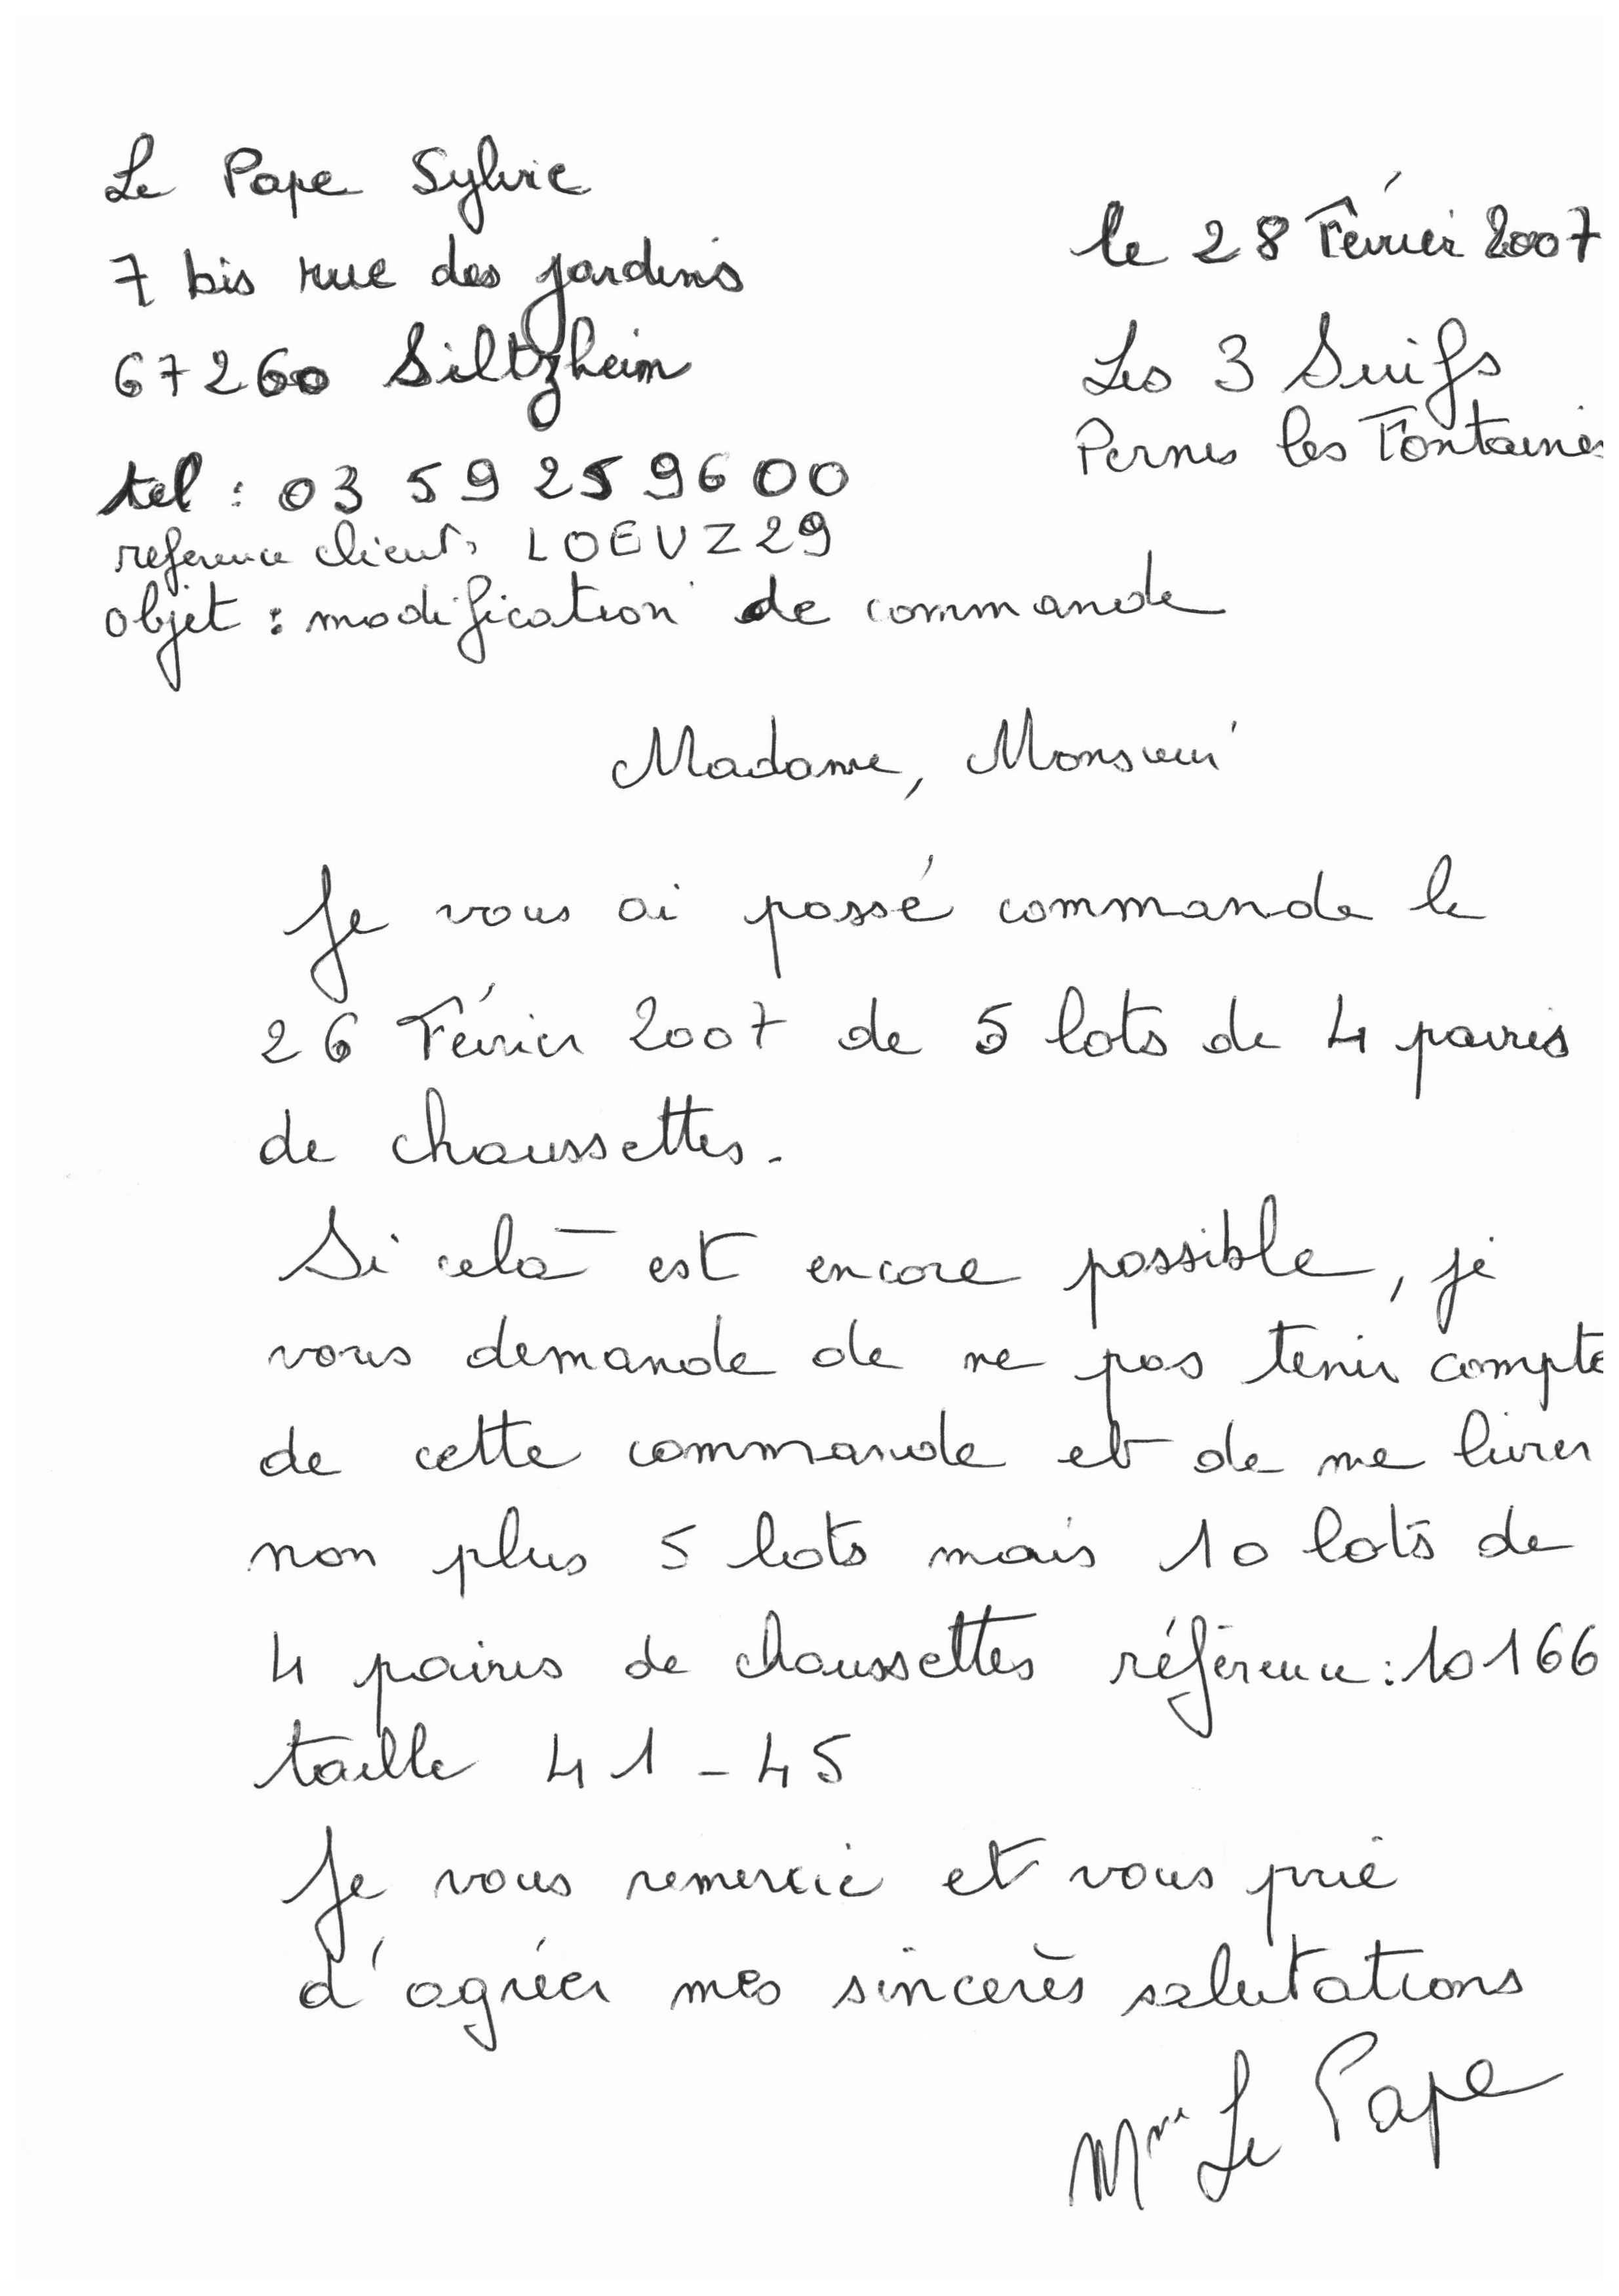 Le Pape Sylvie
7 bis rue des jardins
67260 Siltzheim
tel : 03 59 25 96 00
reference client : LOEVZ29
objet : modification de commande
le 28 Février 2007
Les 3 Suifs
Pernes les Fontaines
Madame, Monsieur
Je vous ai passé commande le
26 Février 2007 de 5 lots de 4 paires
de chaussettes.
Si celà est encore possible, je
vous demande de ne pas tenir compte
de cette commande et de me livrer
non plus 5 lots mais 10 lots de
4 paires de chaussettes référence : 10166
taille 41-45
Je vous remercie et vous prie
d'agréer mes sincerès salutations
Mme Le Pape